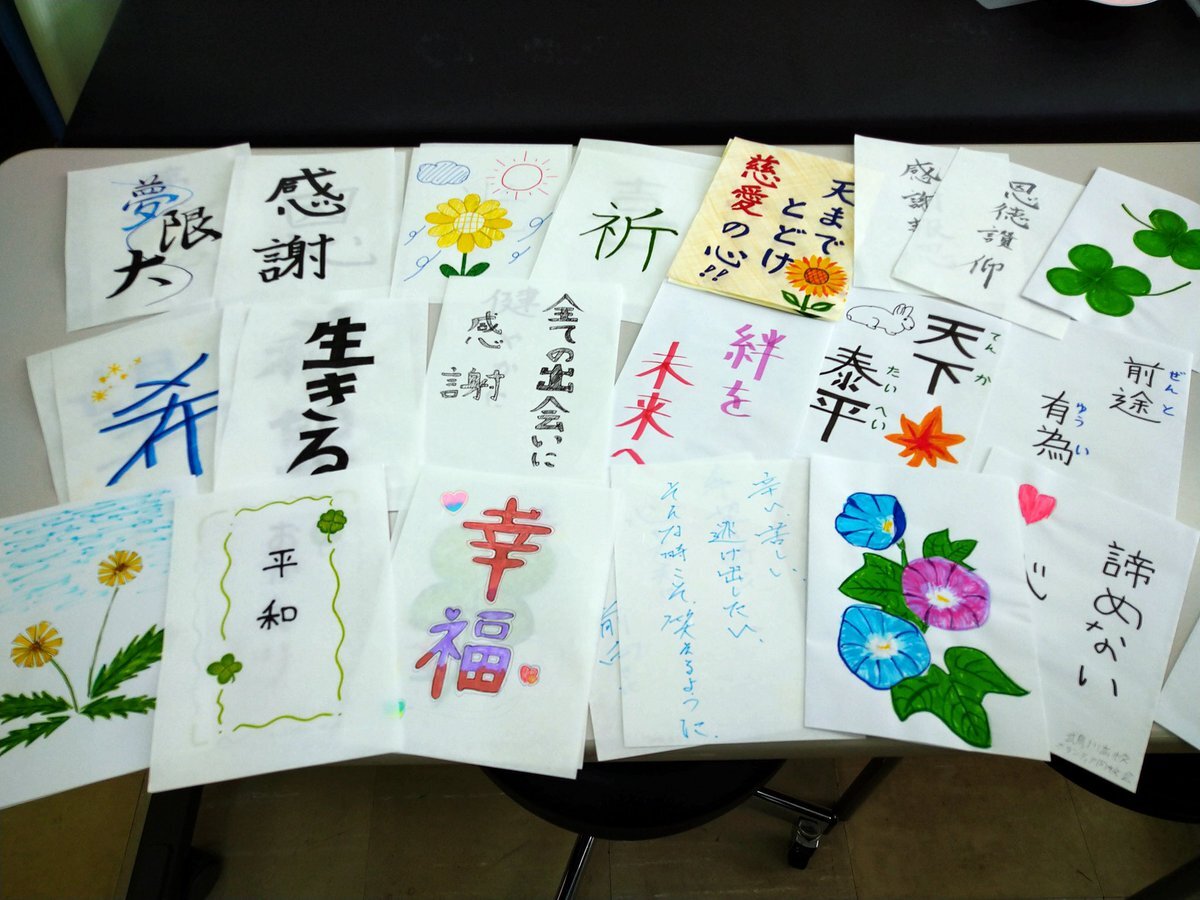 夢
限
大
感
謝
祈
天まで
とどけ
慈愛の心!!
感謝
恩徳讃仰
希
生きる
全ての出会いに
感謝
絆を
未来へ
天下
てんか
泰平
たいへい
前途
ぜんと
有為
ゆうい
平和
幸
福
辛い、苦しい、
逃げ出したい、
そんな時こそ、笑えるように。
諦めない
心